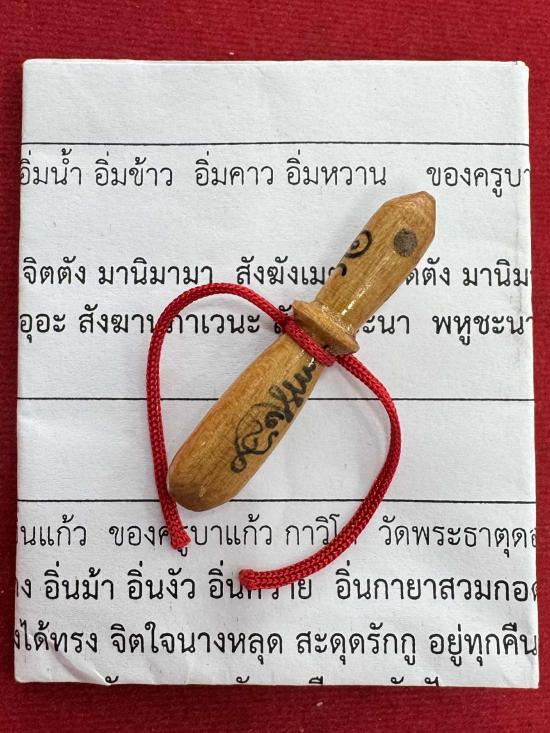 อิ่มน้ำ อิ่มข้าว อิ่มคาว อิ่มหวาน ของครูบา
จิตตัง มานิมามา สังฆังเม ตตัง มานิม
อุอะ สังฆา กาเวนะ ะนา พหูชะนา
นแก้ว ของครูบาแก้ว กาวิโ วัดพระธาตุด
ง อิ่นม้า อิ่นงัว อิ่น อิ่นกายาสวมกอ
ได้ทรง จิตใจนางหลุด สะดุดรักกู อยู่ทุกคืน